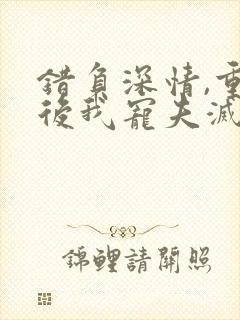 錯負深情,重
後我寵夫滅
錦鯉請開照